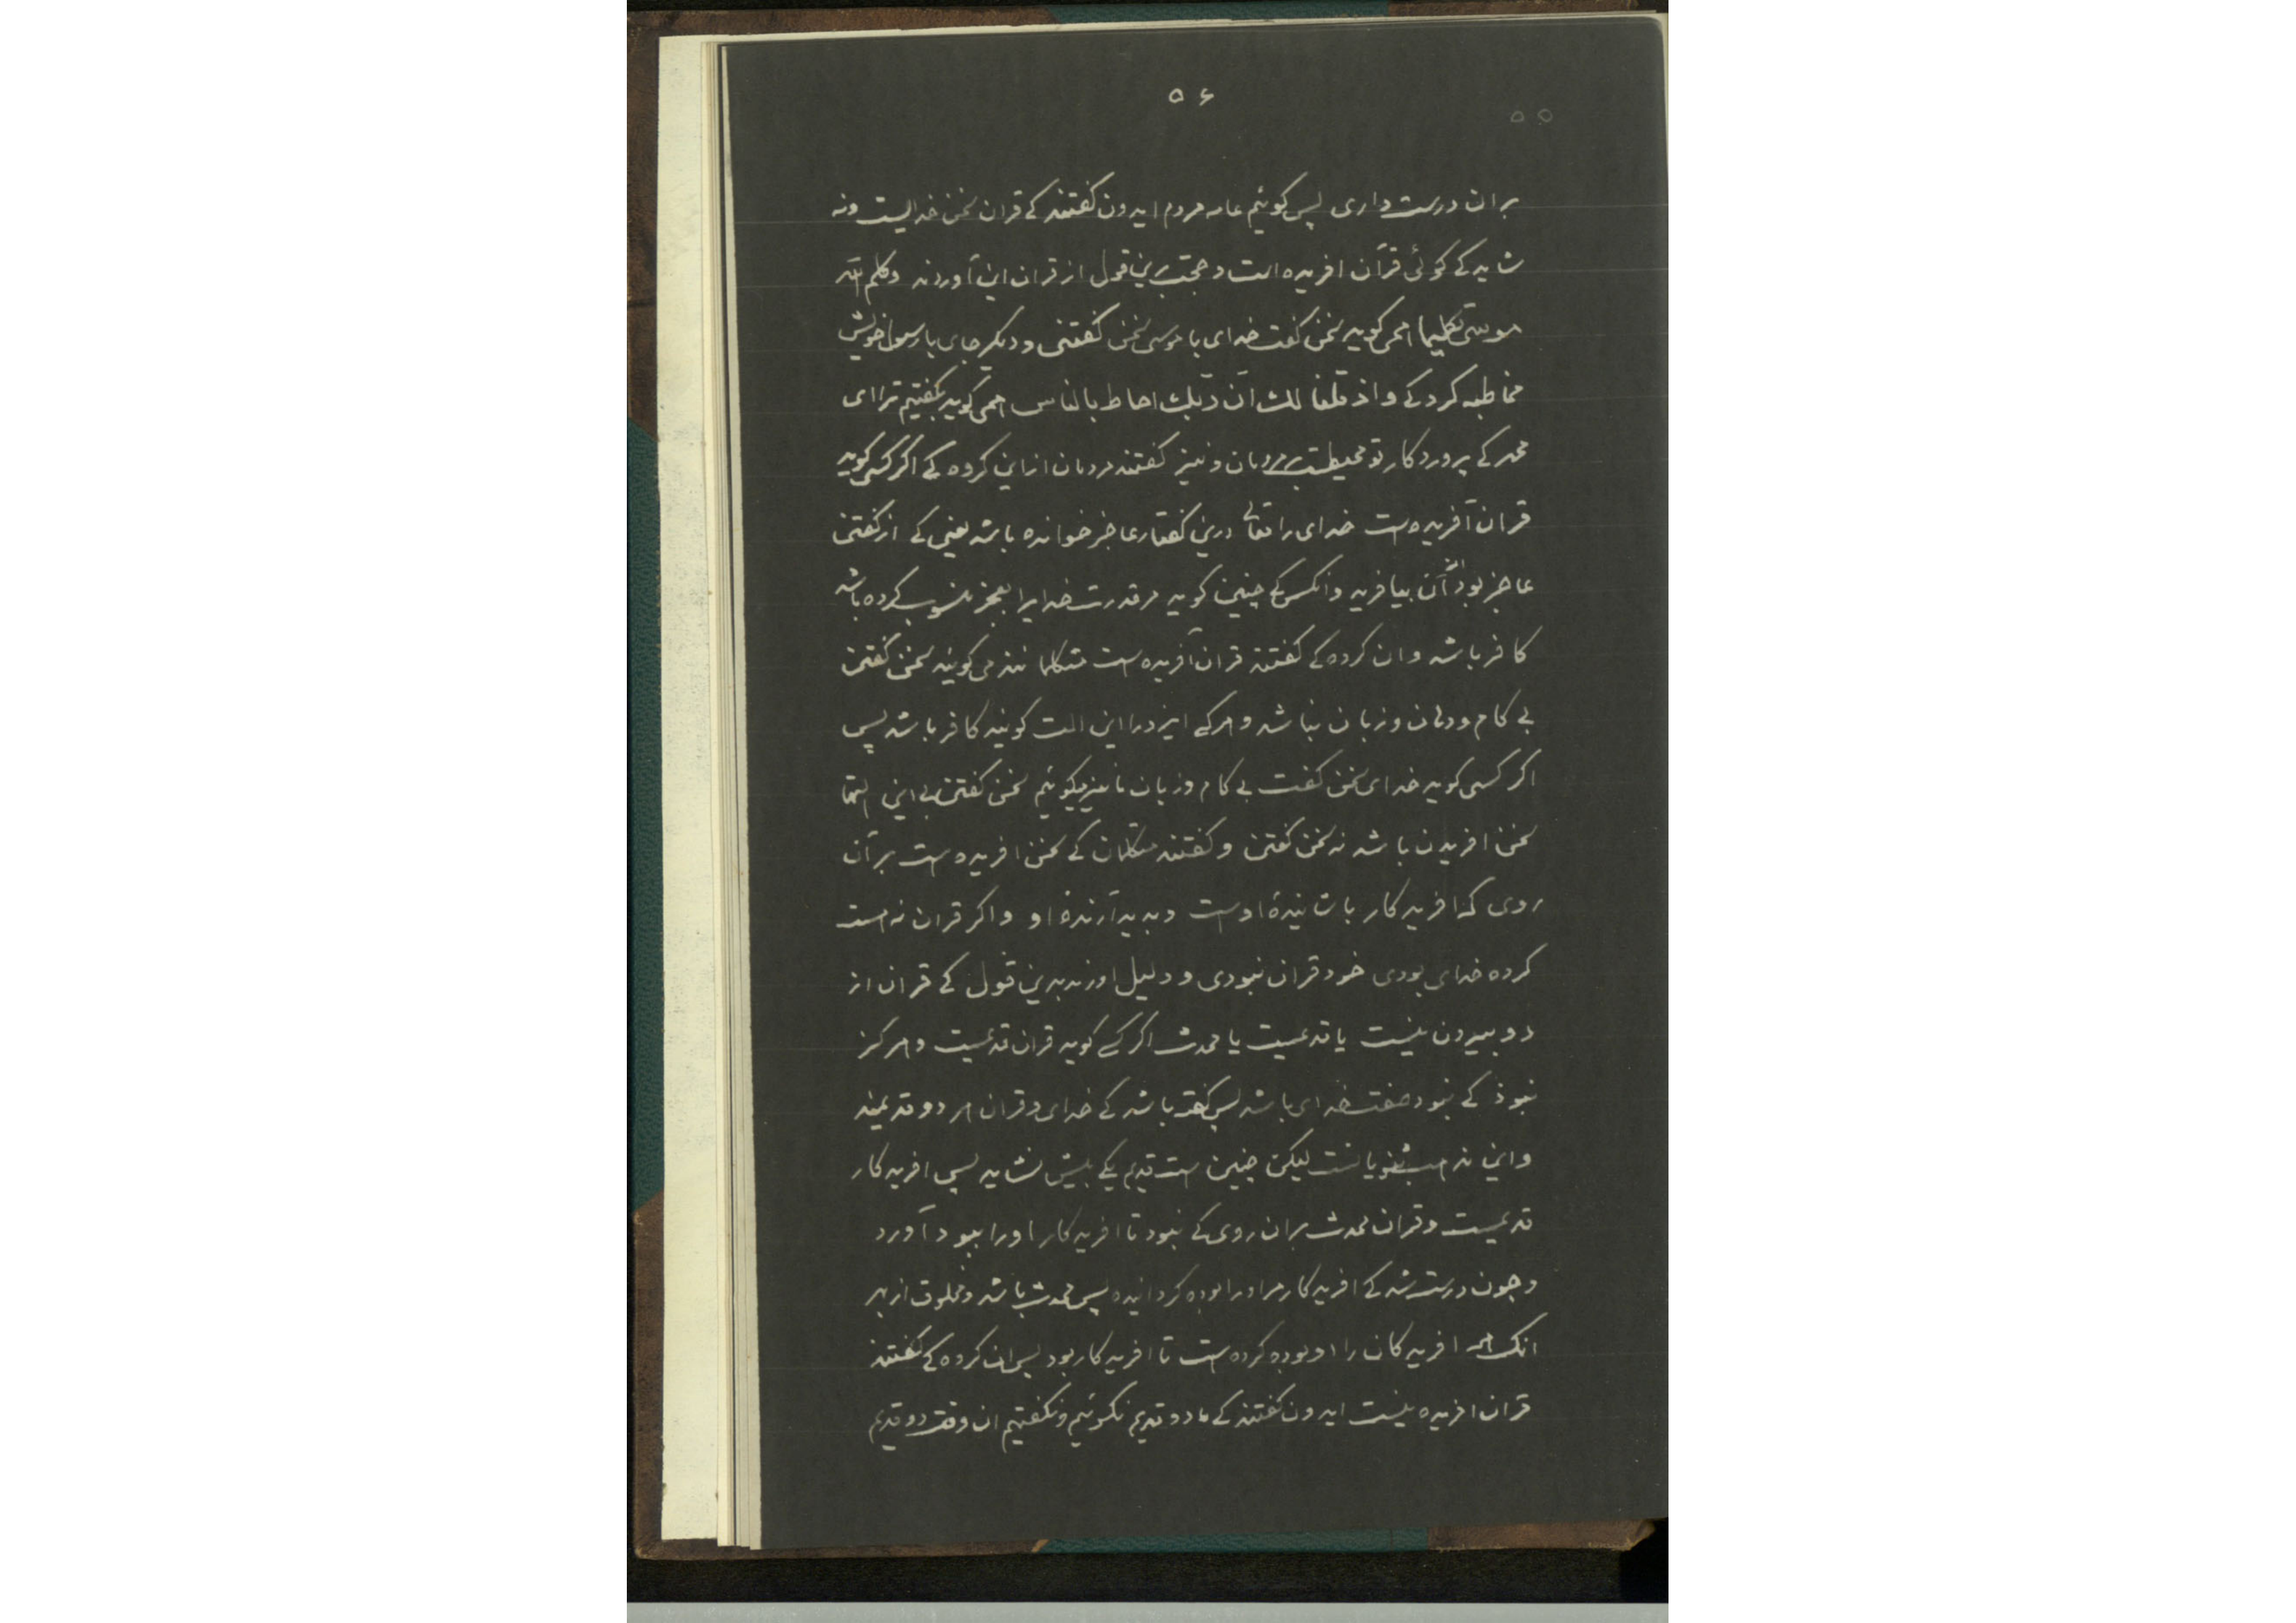 ۵۶
۵۵
بران درست داری پس کوئیم عامه مردم ایدون کفتند کے قران سخن خدایست ونه
شاید کے کوئی قرآن افریده است وحجت برین قول از قران این آوردند وکلم الله
موسی تکلیما همی کوید سخن کفت خدای با موسی سخن کفتنی و دیکر جای با رسول خویش
مخاطبه کرد کے واذ قلنا لك ان ربك احاط بالناس همی کوید بکفتیم ترا ای
محمد کے پروردکار تو محیطست بر مردمان و نیز کفتند مردمان از این کروه کے اکر کسی کوید
قران آفریده ست خدای را تعالی درین کفتار عاجز خوانده باشد یعنی کے از کفتن
عاجز بود آن بیافرید وانکس کے چنین کوید مر قدرت خدایرا بعجز منسوب کرده باشد
کافر باشد وان کروه کے کفتند قران آفریده ست متکلمانند می کویند سخن کفتن
بی کام ودهان وزبان نباشد وهرکے ایزد را این الت کویند کافر باشد پس
اکر کسی کوید خدای سخن کفت بی کام وزبان ما نیز میکوئیم سخن کفتن بی این التها
سخن افریدن باشد نه سخن کفتن وکفتند متکلمان کے سخن افریده ست بر آن
روی که افریدکار باشانیدهٔ اوست وبدید آرندهٔ او واکر قران نه هست
کرده خدای بودی خود قران نبودی و دلیل اوردند بدین قول کے قران از
دو بیرون نیست یا قدیمست یا محدث اکر کسے کوید قران قدیمست وهرکز
نبوذ کے نبود صفت خدای باشد پس کفته باشد کے خدای وقران هر دو قدیمند
واین مذهب ثنویانست لیکن چنین ست قدیم یکے بیش نشاید پس افریدکار
قدیمست وقران محدث بران روی کے نبود تا افریدکار اورا ببود آورد
وچون درست شد کے افریدکار مر اورا بوده کردانیده پس محدث باشد ومخلوق از بهر
انک همه افریدکان را او بوده کرده ست تا افریدکار بود پس ان کروه کے کفتند
قران افریده نیست ایدون کفتند کے ما دو قدیم نکوئیم ونکفتیم ان وقت دو قدیم